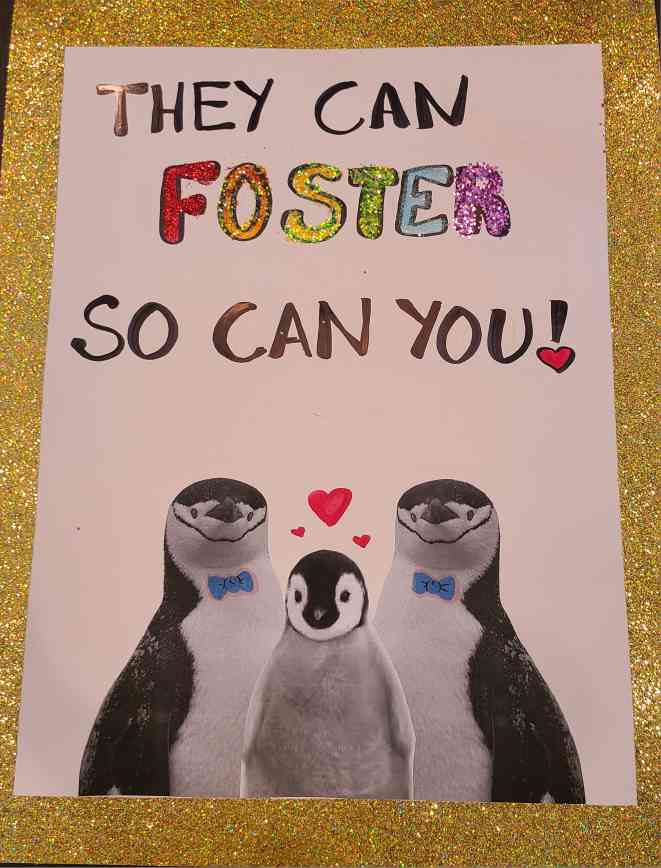 THEY CAN
FOSTER
SO CAN YOU!